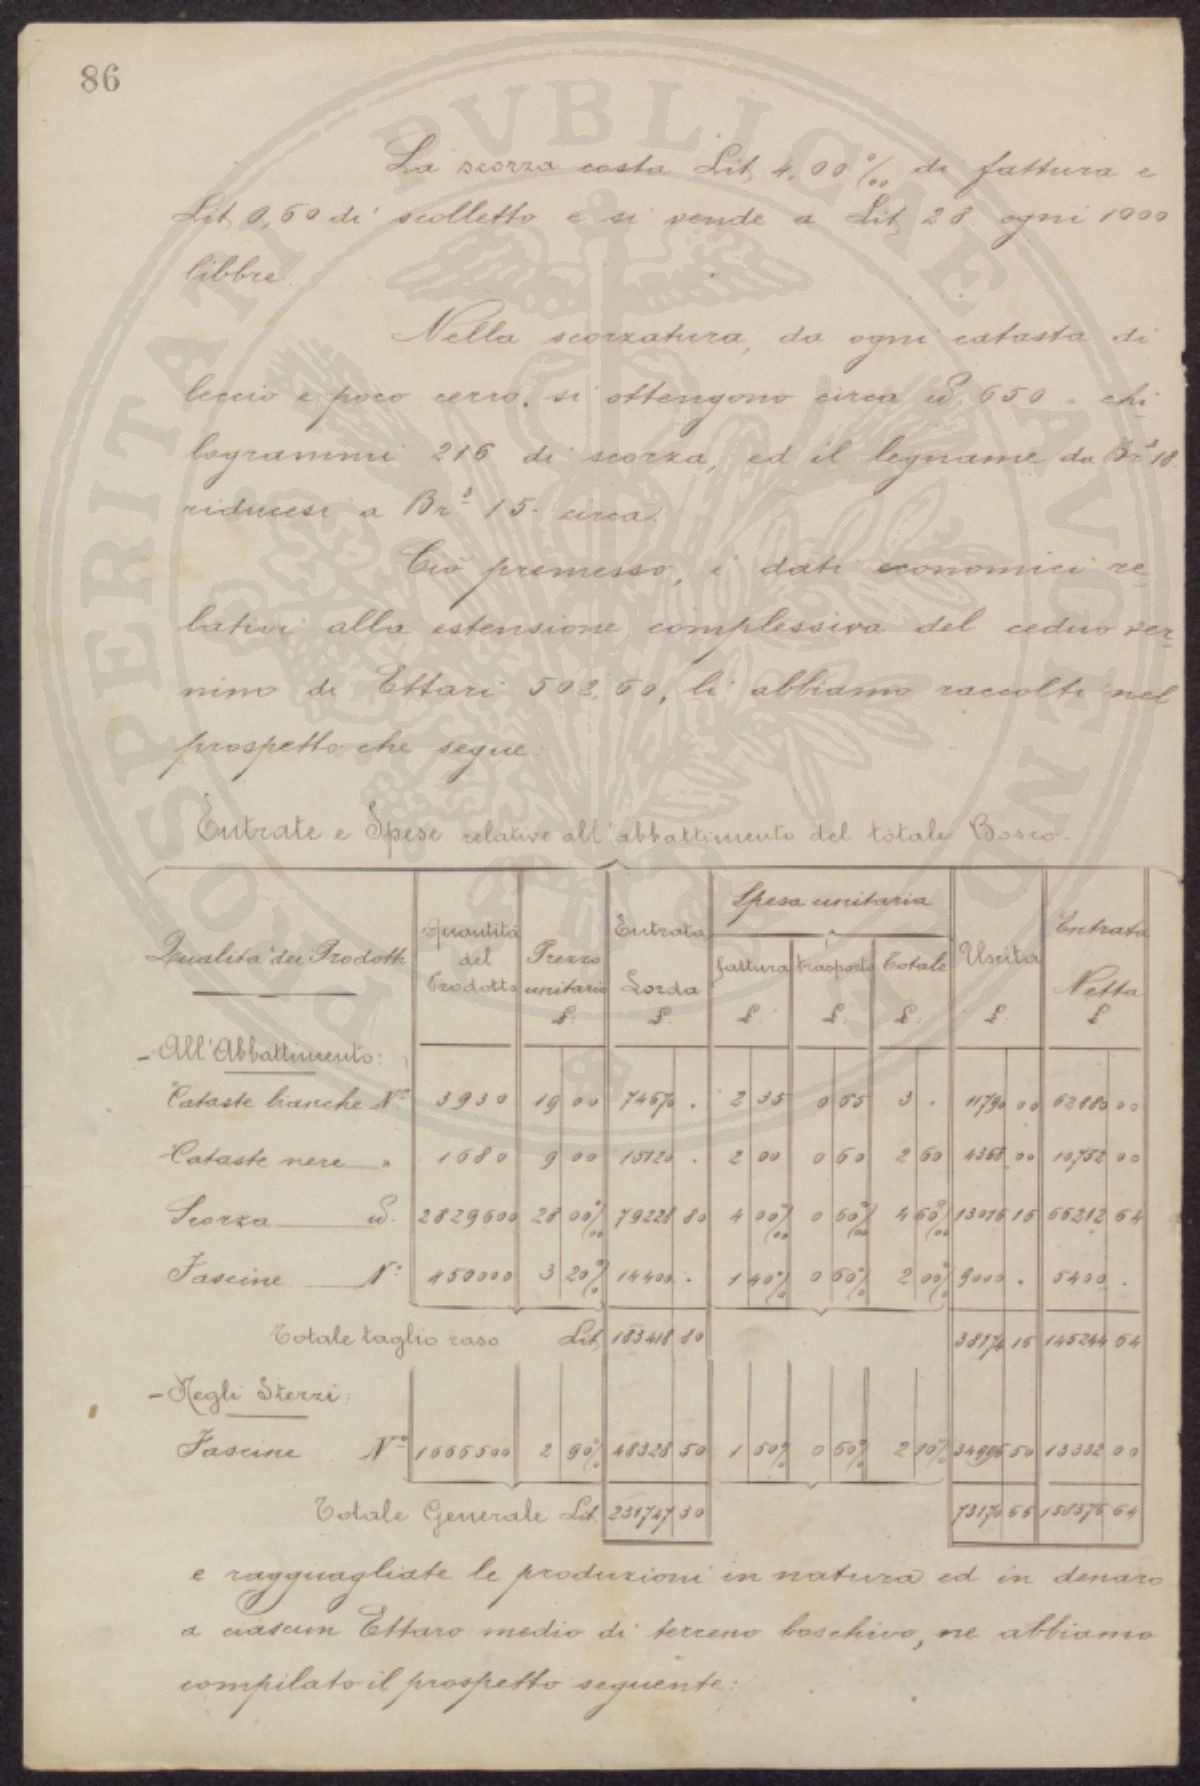 86
La scorza costa Lit. 4,00 ‰ di fattura e
Lit. 0,60 di scolletto e si vende a Lit. 28 ogni 1000
libbre.
Nella scorzatura, da ogni catasta di
leccio e poco cerro, si ottengono circa 650 = chi-
logrammi 216 di scorza, ed il legname da Br.ª 18.
riducesi a Br.ª 15. circa.
Ciò premesso, i dati economici re-
lativi alla estensione complessiva del ceduo ser-
nino di Ettari 502,60, li abbiamo raccolti nel
prospetto che segue:
Entrate e Spese relative all'abbattimento del totale Bosco.
Qualità dei Prodotti Quantità del Prodotto Prezzo unitario £. Entrata Lorda £. Spesa unitaria fattura £. trasporto £. Totale £. Uscita £. Entrata Netta £
- All'Abbattimento:
Cataste bianche N.º 3930 19 00 74670 . 2 35 0 65 3 . 11790 00 62880 00
Cataste nere " 1680 9 00 15120 . 2 00 0 60 2 60 4368 00 10752 00
Scorza 2829600 28 00 ‰ 79228 80 4 00 ‰ 0 60 ‰ 4 60 ‰ 13016 16 66212 64
Fascine N.º 450000 3 20 % 14400 . 1 40 % 0 60 % 2 00 % 9000 . 5400 .
Totale taglio raso Lit. 183418 80 38174 16 145244 64
- Negli Sterzi:
Fascine N.º 1666500 2 90 % 48328 50 1 50 % 0 60 % 2 10 % 34996 50 13332 00
Totale Generale Lit. 231747 30 73170 66 158576 64
e ragguagliate le produzioni in natura ed in denaro
a ciascun Ettaro medio di terreno boschivo, ne abbiamo
compilato il prospetto seguente:
PROSPERITATI PVBLICAE AVGENDAE